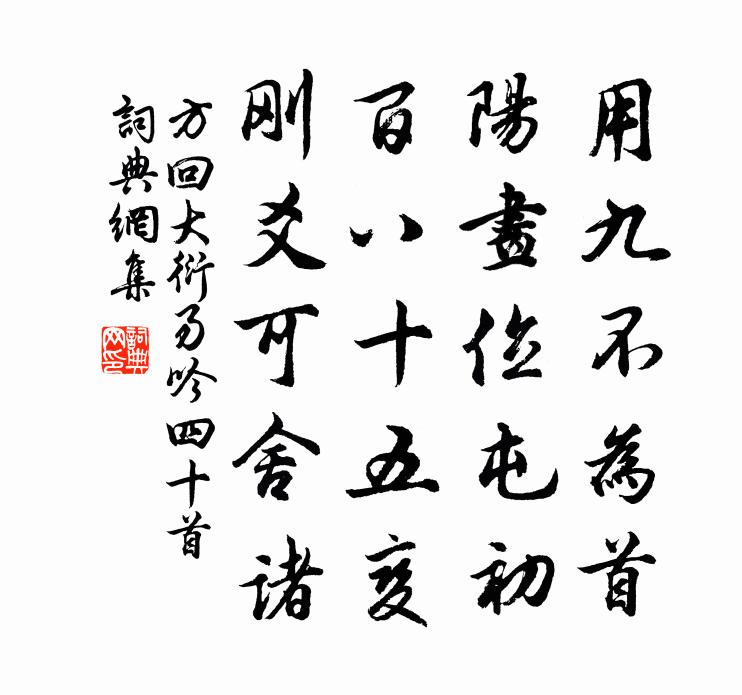 用九不為首
陽畫位屯初
百八十五变
刚爻可舍诸
方回大衍易吟四十首
詞典網集
詞典网印